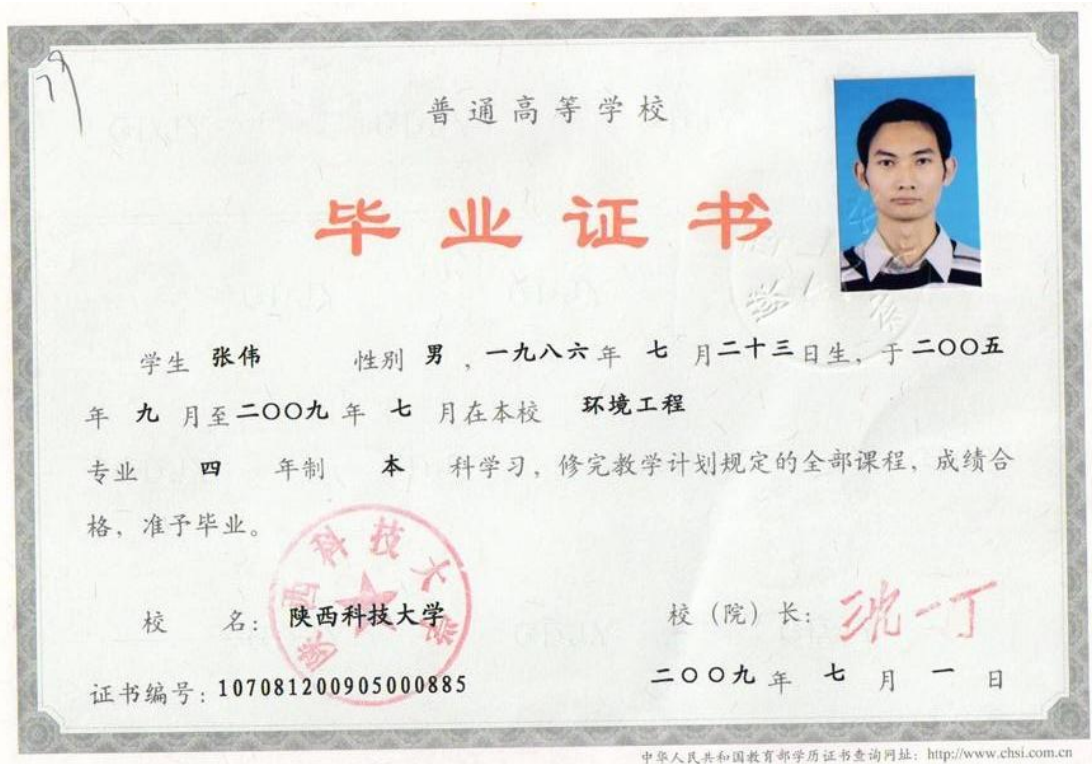 普通高等学校
毕业证书
学生 张伟 性别 男 ，一九八六 年 七 月 二十三 日生，于 二〇〇五
年 九 月至 二〇〇九 年 七 月在本校 环境工程
专业 四 年制 本 科学习，修完教学计划规定的全部课程，成绩合
格，准予毕业。
陕西科技大学
校 名：陕西科技大学 校（院）长：沈一丁
证书编号：107081200905000885 二〇〇九 年 七 月 一 日
中华人民共和国教育部学历证书查询网址：http://www.chsi.com.cn